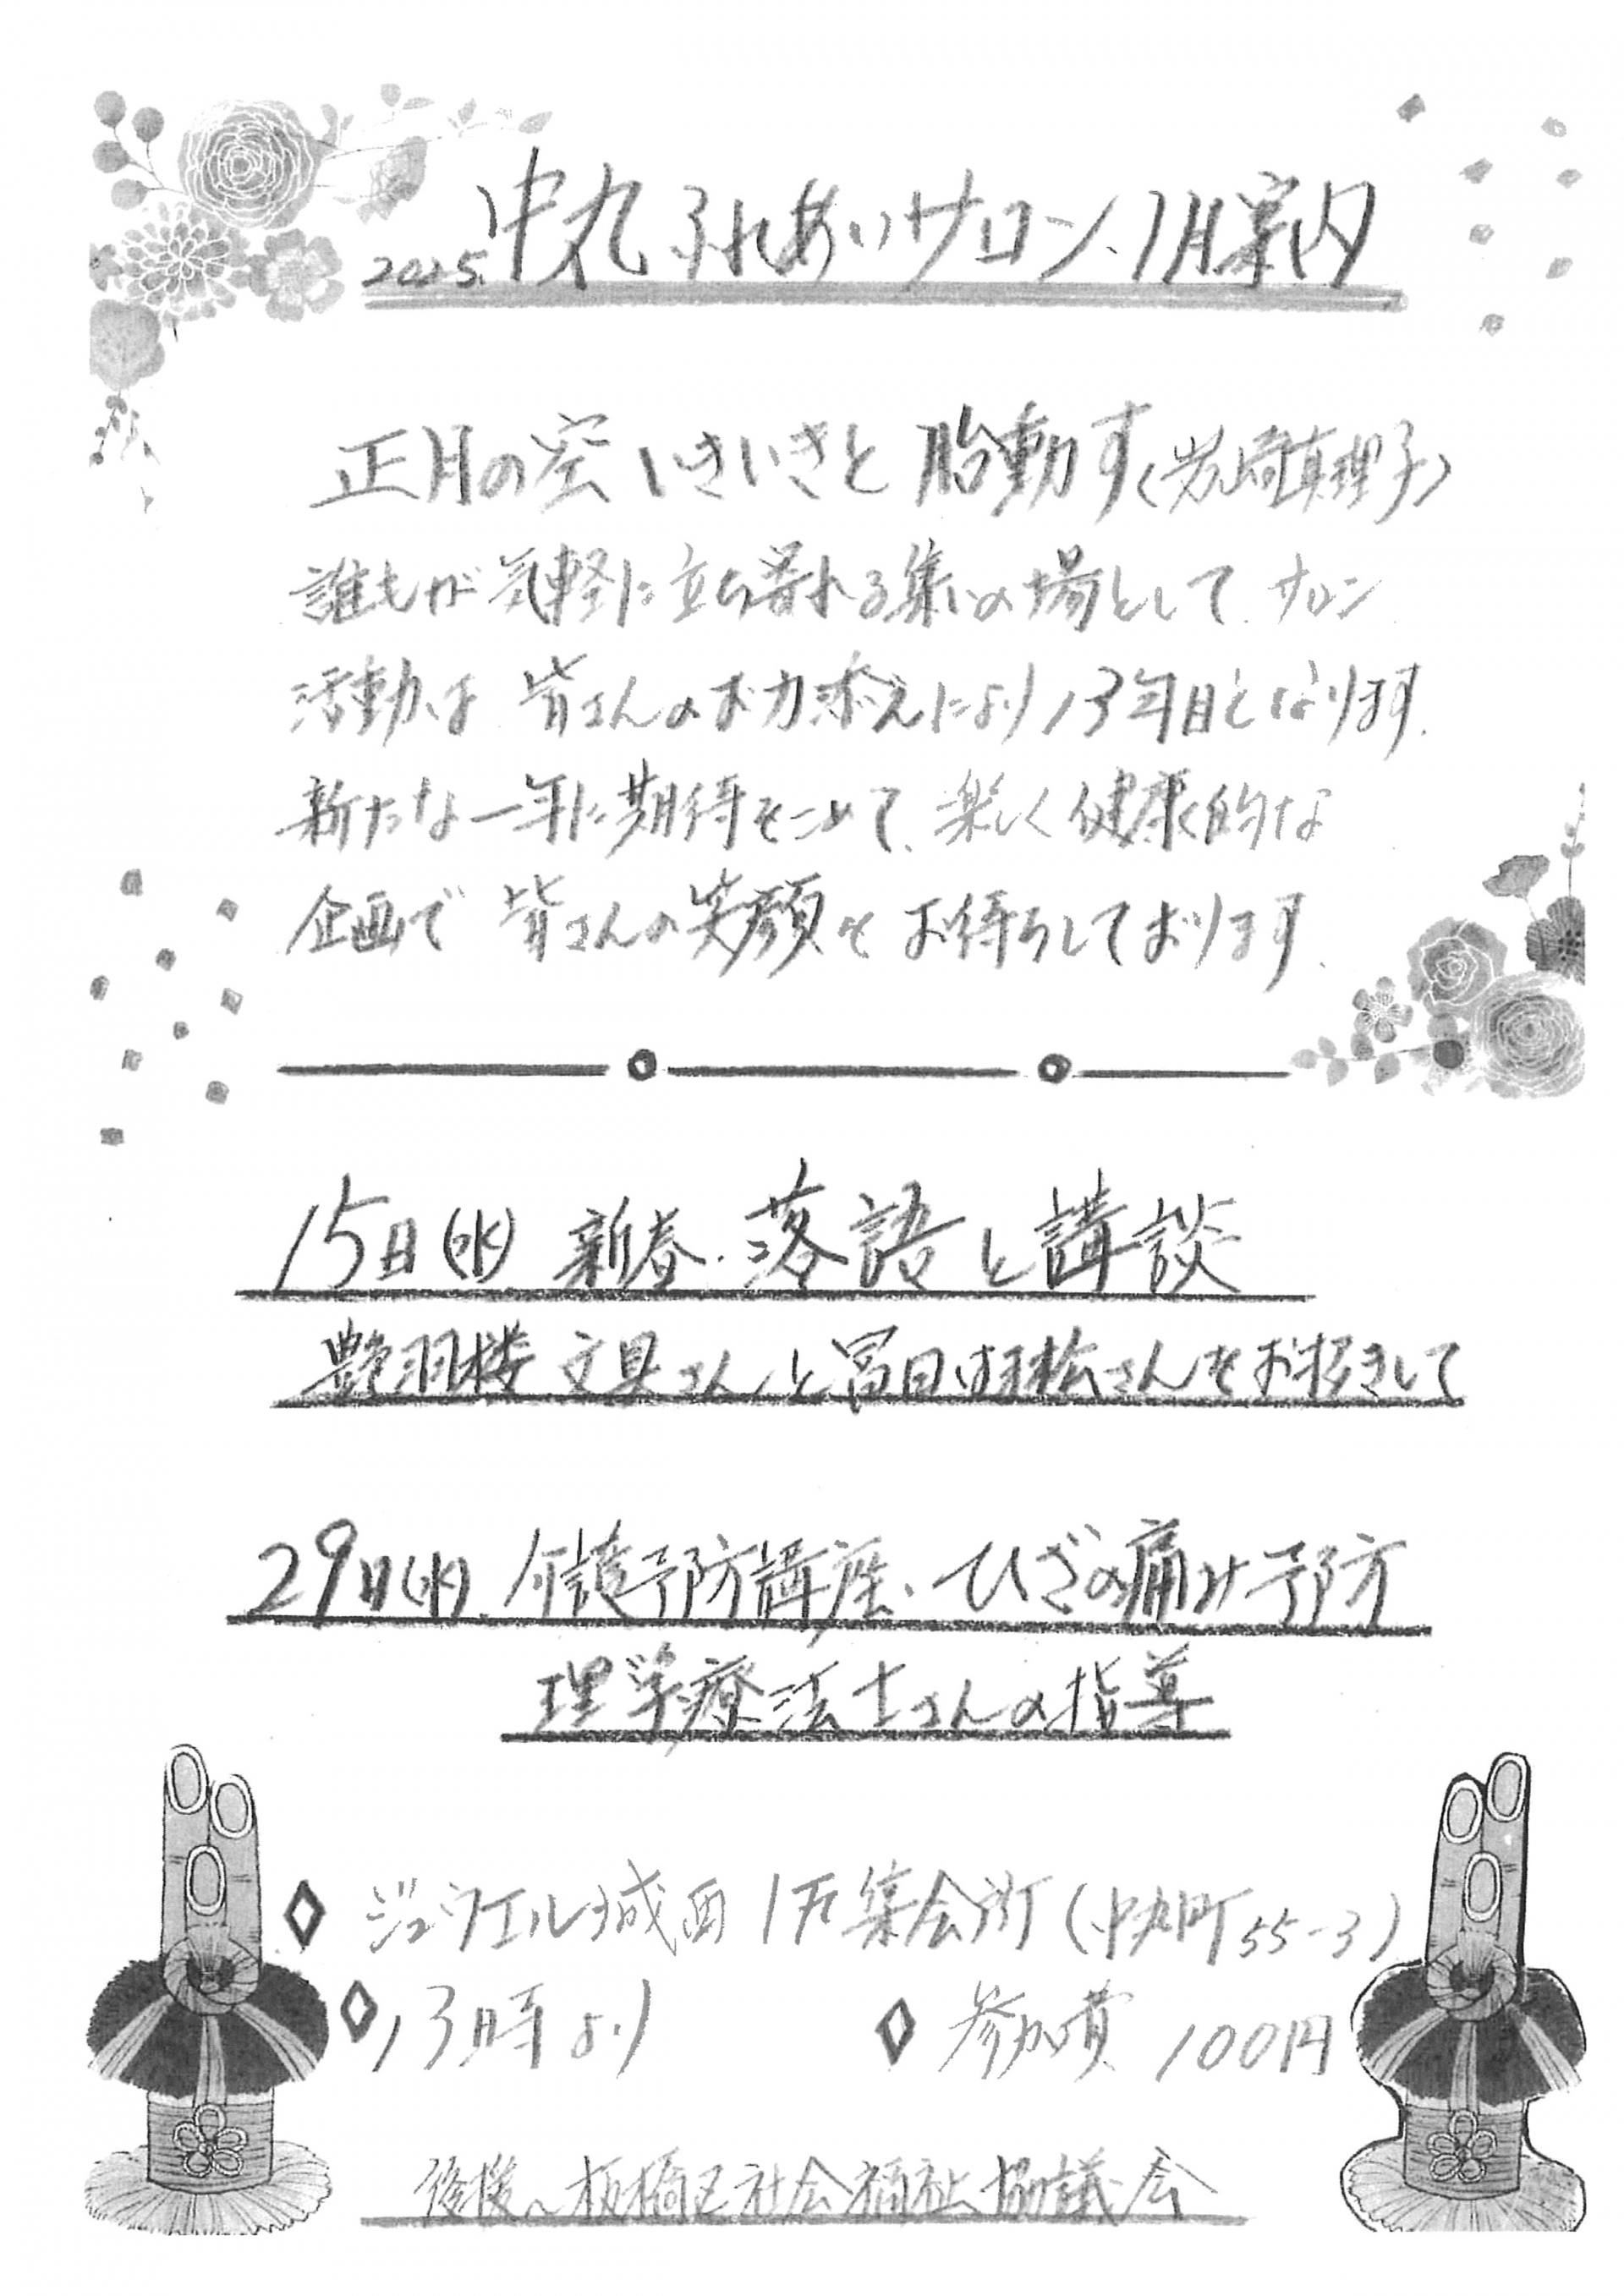 2025.中丸ふれあいサロン.1月案内
正月の空いきいきと胎動す(岩崎真理子)
誰もが気軽に立ち寄れる集いの場として、サロン
活動は 皆さんのお力添えにより13年目となります.
新たな一年に期待をこめて、楽しく健康的な
企画で 皆さんの笑顔をお待ちしております.
15日(水) 新春.落語と講談
艶羽楼 文具さんと さんをお招きして
29日(水).介護予防講座.ひざの痛み予防
理学療法士さんの指導
ジュウエル城西 1F集会所(中丸町55-3)
13時より
参加費 100円
後援〜板橋区社会福祉協議会